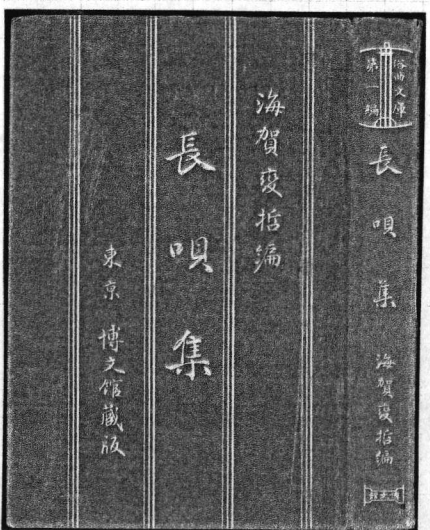 俗曲文庫
第一編
長唄集
海賀変哲編
海賀変哲編
長唄集
東京 博文館藏版